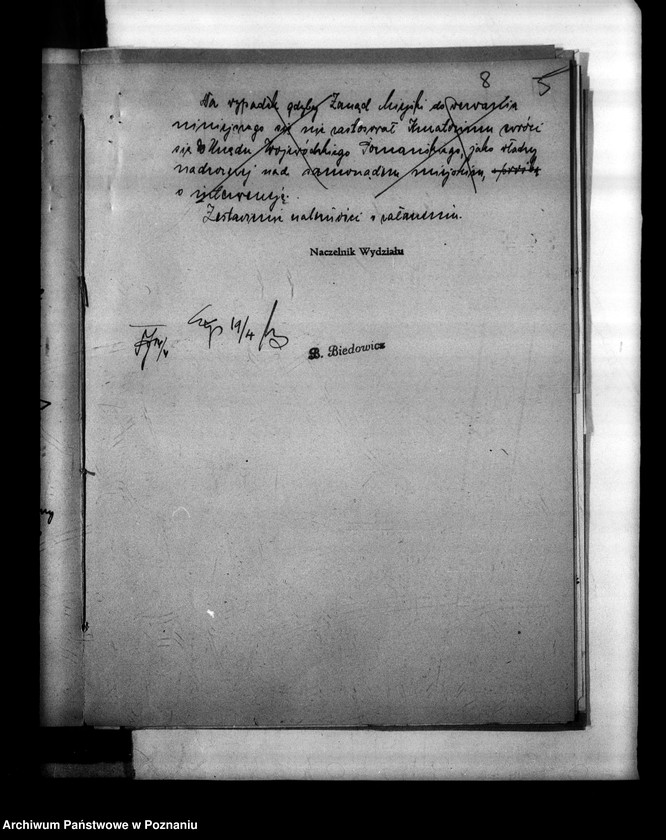 8 5
Na wypadek gdyby Zarząd Miejski do wezwania
niniejszego się nie zastosował Kuratorium zwróci
się do Urzędu Wojewódzkiego Poznańskiego, jako władzy
nadzorczej nad samorządem miejskim, z prośbą
o interwencję.
Zestawienie należności w załączeniu.
Naczelnik Wydziału
19/4
B. Biedowicz
Archiwum Państwowe w Poznaniu